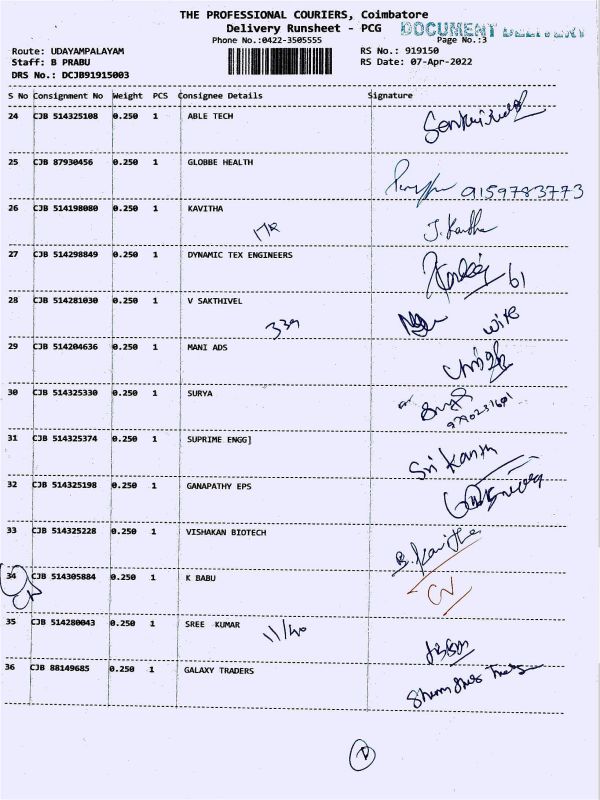 THE PROFESSIONAL COURIERS, Coimbatore
Delivery Runsheet - PCG
DOCUMENT DELIVERY
Phone No.:0422-3505555
Page No.:3
Route: UDAYAMPALAYAM
RS No.: 919150
Staff: B PRABU
RS Date: 07-Apr-2022
DRS No.: DCJB91915003
S No Consignment No Weight PCS Consignee Details Signature
24 CJB 514325108 0.250 1 ABLE TECH
25 CJB 87930456 0.250 1 GLOBBE HEALTH
9159783773
26 CJB 514198080 0.250 1 KAVITHA
J. Kavitha
27 CJB 514298849 0.250 1 DYNAMIC TEX ENGINEERS
61
28 CJB 514281030 0.250 1 V SAKTHIVEL
339
wife
29 CJB 514204636 0.250 1 MANI ADS
30 CJB 514325330 0.250 1 SURYA
31 CJB 514325374 0.250 1 SUPRIME ENGG]
Sri Kanth
32 CJB 514325198 0.250 1 GANAPATHY EPS
33 CJB 514325228 0.250 1 VISHAKAN BIOTECH
B. Kavitha
34 CJB 514305884 0.250 1 K BABU
35 CJB 514280043 0.250 1 SREE KUMAR
11/40
36 CJB 88149685 0.250 1 GALAXY TRADERS